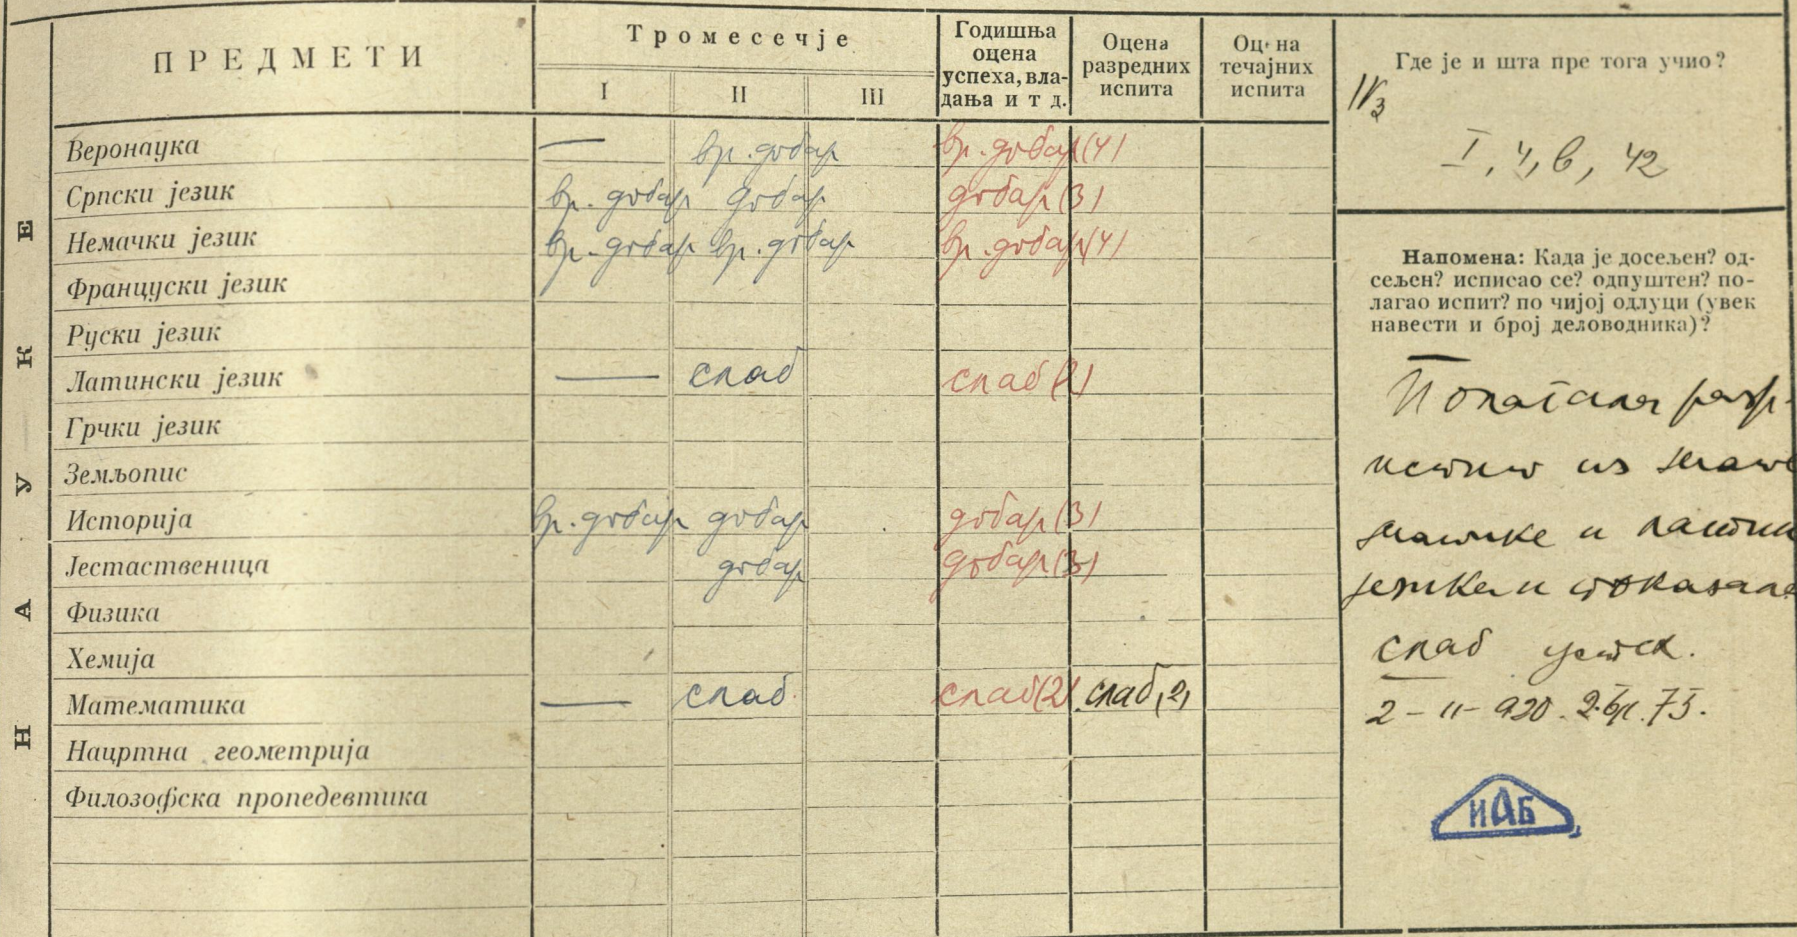 ПРЕДМЕТИ
Тромесечје
I II III
Годишња оцена успеха, владања и т д.
Оцена разредних испита
Оцена течајних испита
Где је и шта пре тога учио?
IV3
I, 4, в, 42
НАУКЕ
Веронаука — вр. добар вр. добар (4)
Српски језик вр. добар добар добар (3)
Немачки језик вр. добар вр. добар вр. добар (4)
Француски језик
Руски језик
Латински језик — слаб слаб
Грчки језик
Земљопис
Историја вр. добар добар добар (3)
Јестаственица добар добар (3)
Физика
Хемија
Математика — слаб. слаб (2) слаб, (2)
Нацртна геометрија
Филозофска пропедевтика
Напомена: Када је досељен? од-
сељен? исписао се? одпуштен? по-
лагао испит? по чијој одлуци (увек
навести и број деловодника)?
Полагала разр.
испит из мате
матике и латин
језика и показала
слаб успех.
2-II-920. Д.бр. 75.
ИАБ